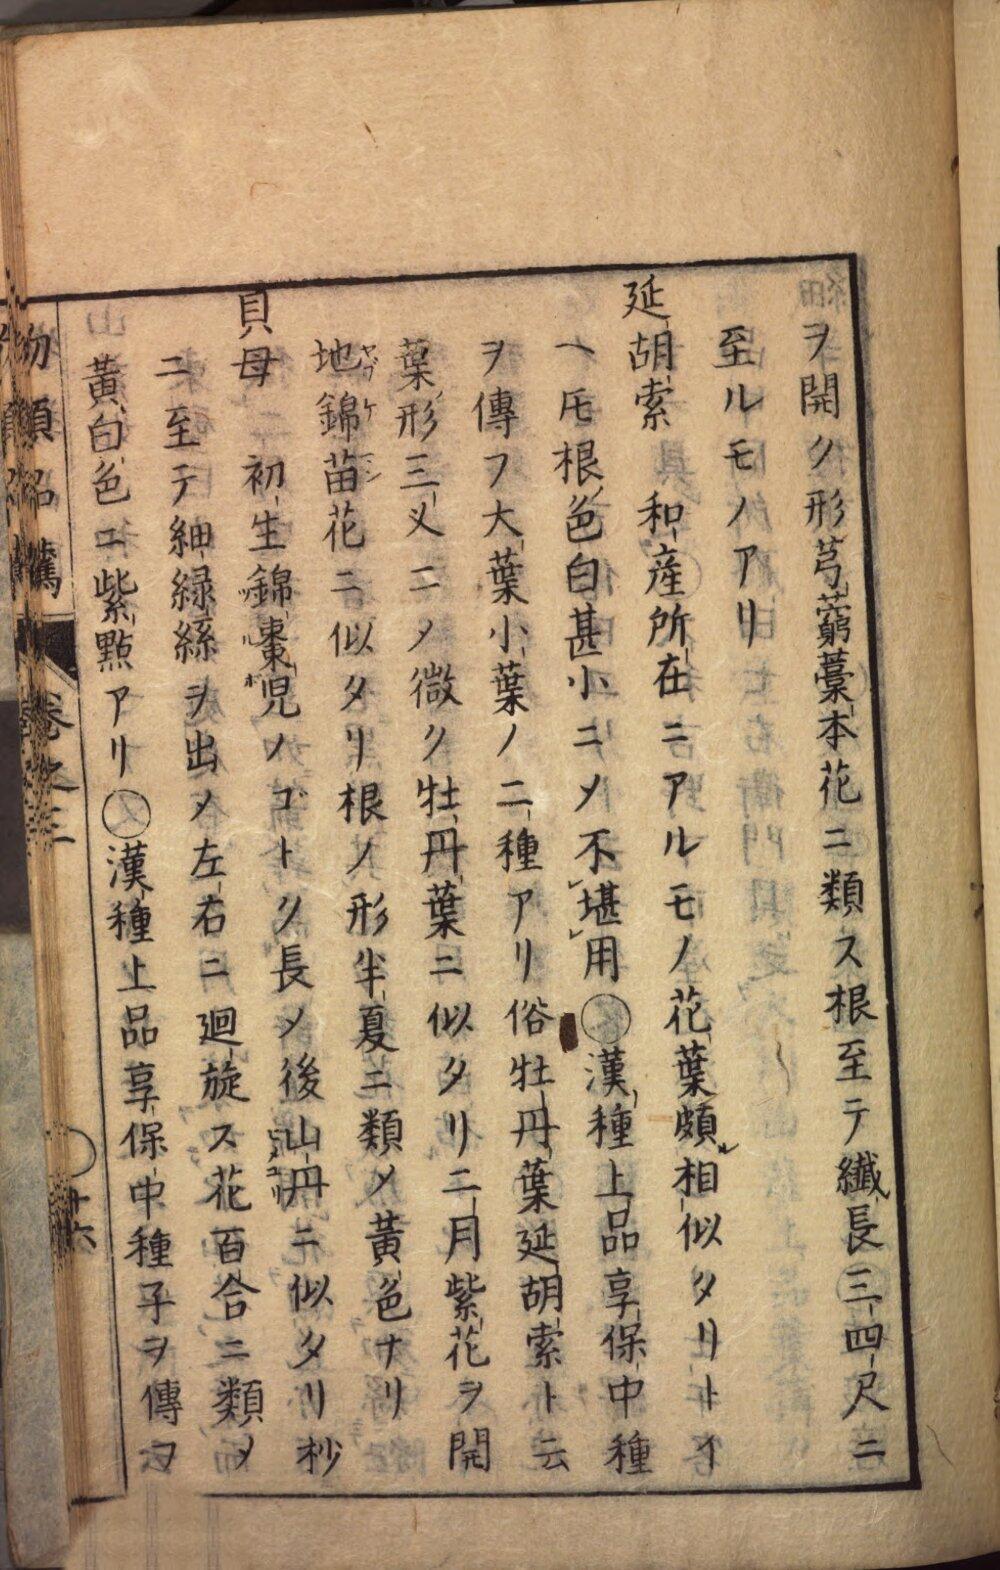 ヲ開ク形芎藭藁本花ニ類ス根至テ纖長三四尺ニ
至ルモノアリ
延胡索 和産所在ニアルモノ花葉頗相似タリトイ
ヘ𪜈根色白甚小ニ〆不堪用○漢種上品享保中種
ヲ傳フ大葉小葉ノ二種アリ俗牡丹葉延胡索ト云
葉形三乂ニ〆微ク牡丹葉ニ似タリ二月紫花ヲ開
地錦苗花ニ似タリ根ノ形半夏ニ類〆黃色ナリ
貝母 初生錦棗児ノゴトク長〆後山丹ニ似タリ杪
ニ至テ細緑絲ヲ出〆左右ニ迴旋ス花百合ニ類〆
黃白色ニ紫點アリ○漢種上品享保中種子ヲ傳フ
物類品隲 卷之三 ○ 十六